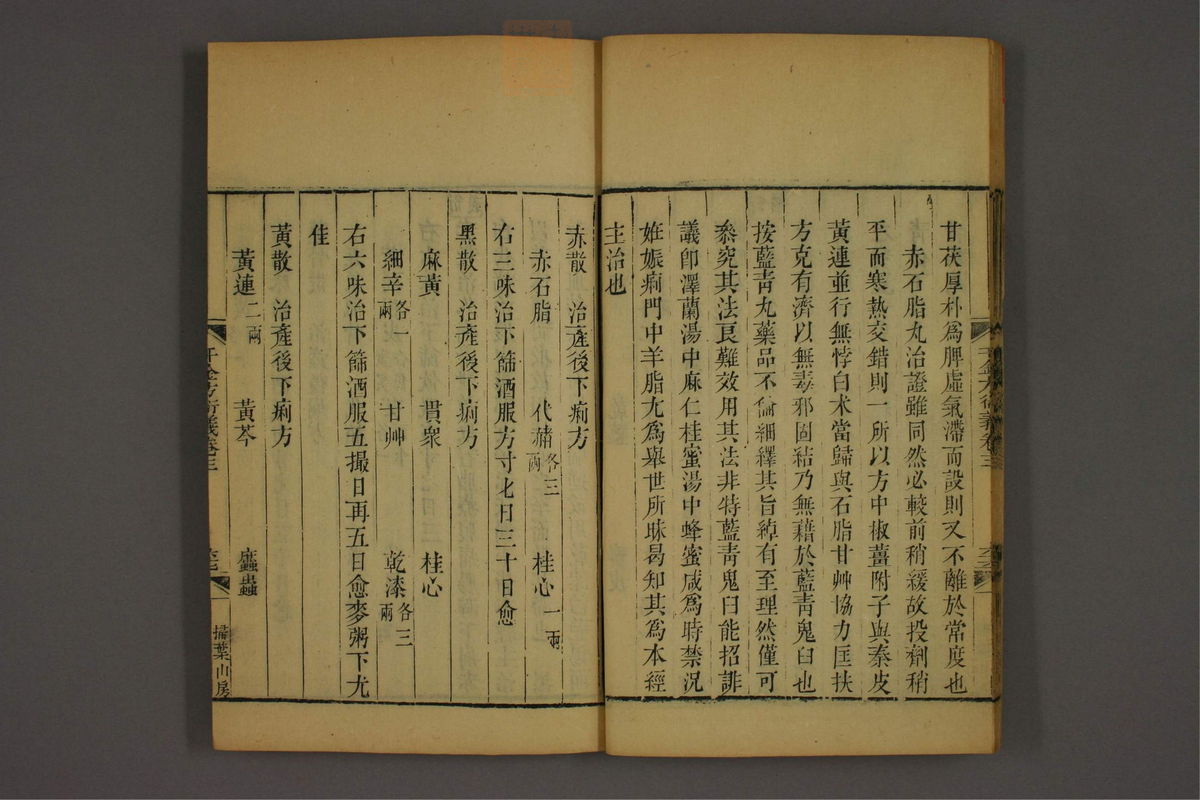 甘茯厚朴爲脾虛氣滯而設則又不離於常度也
赤石脂丸治證雖同然必較前稍緩故投劑稍
平而寒熱交錯則一所以方中椒薑附子與秦皮
黃連並行無悖白术當歸與石脂甘艸協力匡扶
方克有濟以無毒邪固結乃無藉於藍青鬼臼也
按藍青丸藥品不倫細繹其旨綽有至理然僅可
叅究其法良難效用其法非特藍青鬼臼能招誹
議卽澤蘭湯中麻仁桂蜜湯中蜂蜜咸爲時禁況
姙娠痢門中羊脂尤爲舉世所昧曷知其爲本經
主治也
千金方衍義卷三
赤散 治產後下痢方
赤石脂 代赭各三兩 桂心一兩
右三味治下篩酒服方寸匕日三十日愈
黑散 治產後下痢方
麻黃 貫衆 桂心
細辛各一兩 甘艸 乾漆各三兩
右六味治下篩酒服五撮日再五日愈麥粥下尤
佳
黃散 治產後下痢方
黃連二兩 黃芩 䗪蟲
千金方衍義卷三
掃葉山房